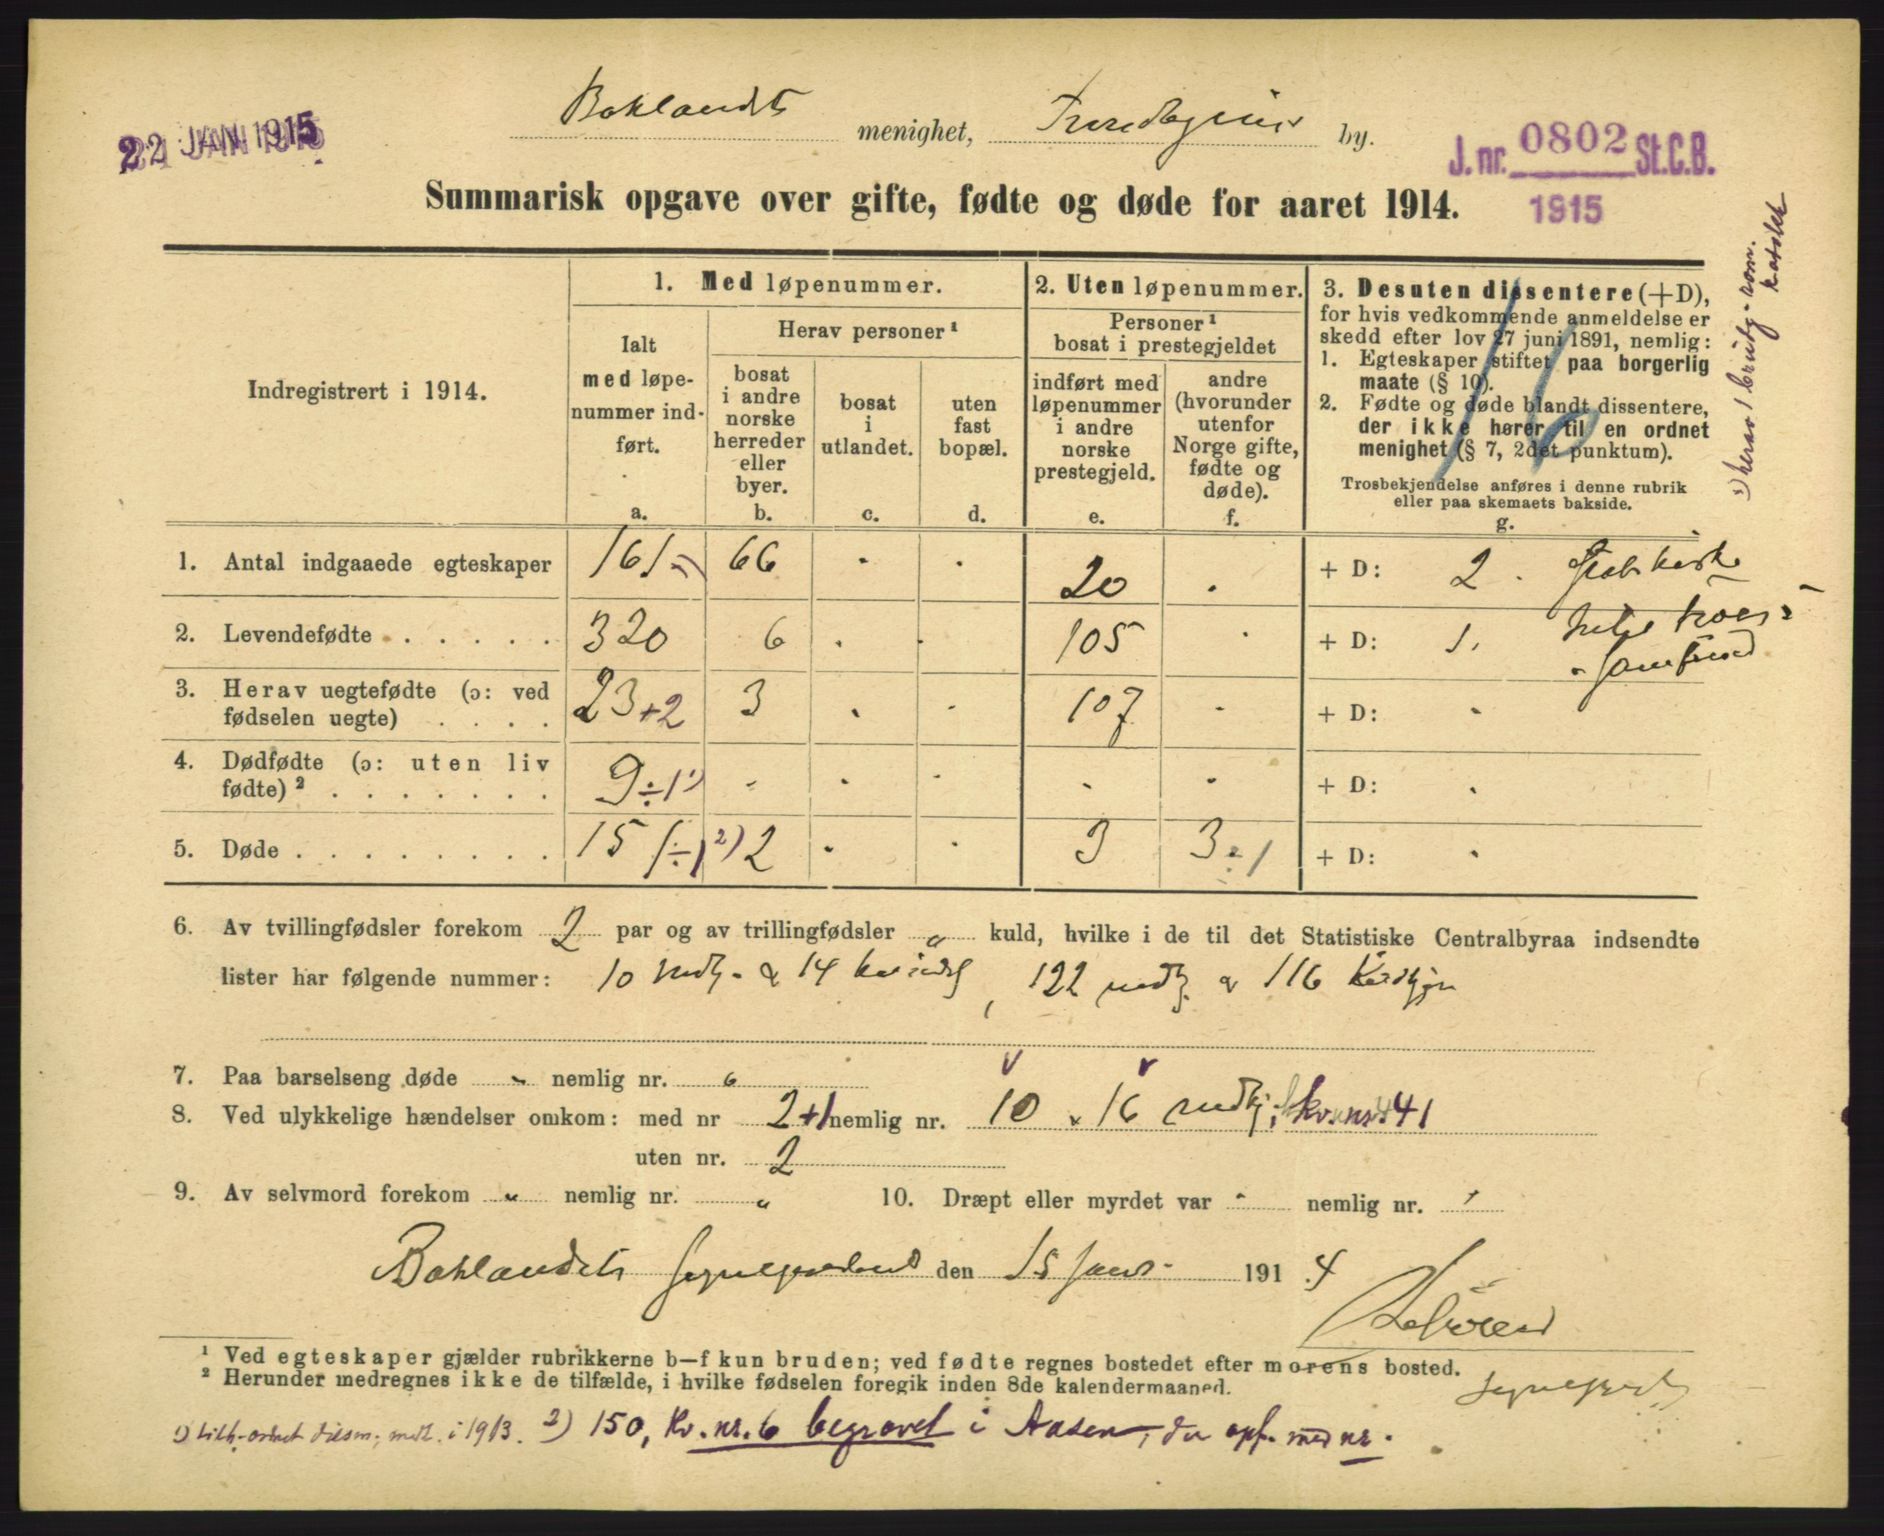 22 JAN 1915
Baklandets menighet, Trondhjems by.
J. nr. 0802 St.C.B.
1915
Summarisk opgave over gifte, fødte og døde for aaret 1914.
Indregistrert i 1914.
1. Med løpenummer.
Ialt
med løpe-
nummer ind-
ført.
a.
Herav personer ¹
bosat
i andre
norske
herreder
eller
byer.
b.
bosat
i
utlandet.
c.
uten
fast
bopæl.
d.
2. Uten løpenummer.
Personer ¹
bosat i prestegjeldet
indført med
løpenummer
i andre
norske
prestegjeld.
e.
andre
(hvorunder
utenfor
Norge gifte,
fødte og
døde).
f.
3. Desuten dissentere (+D),
for hvis vedkommende anmeldelse er
skedd efter lov 27 juni 1891, nemlig:
1. Egteskaper stiftet paa borgerlig
maate (§ 10).
2. Fødte og døde blandt dissentere,
der ikke hører til en ordnet
menighet (§ 7, 2det punktum).
Trosbekjendelse anføres i denne rubrik
eller paa skemaets bakside.
g.
1. Antal indgaaede egteskaper 161 66 · · 20 · + D: 2
2. Levendefødte . . . . . 320 6 · · 105 · + D: 1
3. Herav uegtefødte (ɔ: ved
fødselen uegte) . . . . 23+2 3 · · 107 · + D: ·
4. Dødfødte (ɔ: uten liv
fødte) ² . . . . . . . 9÷1 ¹) · · · · · + D: ·
5. Døde . . . . . . . . . 151÷1 ²) 2 · · 3 3÷1 + D: ·
6. Av tvillingfødsler forekom 2 par og av trillingfødsler „ kuld, hvilke i de til det Statistiske Centralbyraa indsendte
lister har følgende nummer: 10 mdkj. & 14 , 122 mdkj. & 116
7. Paa barselseng døde „ nemlig nr.
8. Ved ulykkelige hændelser omkom: med nr 2+1 nemlig nr. 10 & 16 mdkj; kv. nr. 41
uten nr. 2
9. Av selvmord forekom „ nemlig nr. „ 10. Dræpt eller myrdet var „ nemlig nr.
Baklandets den 15 Janr. 1914
¹ Ved egteskaper gjælder rubrikkerne b—f kun bruden; ved fødte regnes bostedet efter morens bosted.
² Herunder medregnes ikke de tilfælde, i hvilke fødselen foregik inden 8de kalendermaaned.
i 1913. 2) 150, Kv. nr. 6 begravet i Aasen, der opf. med nr.